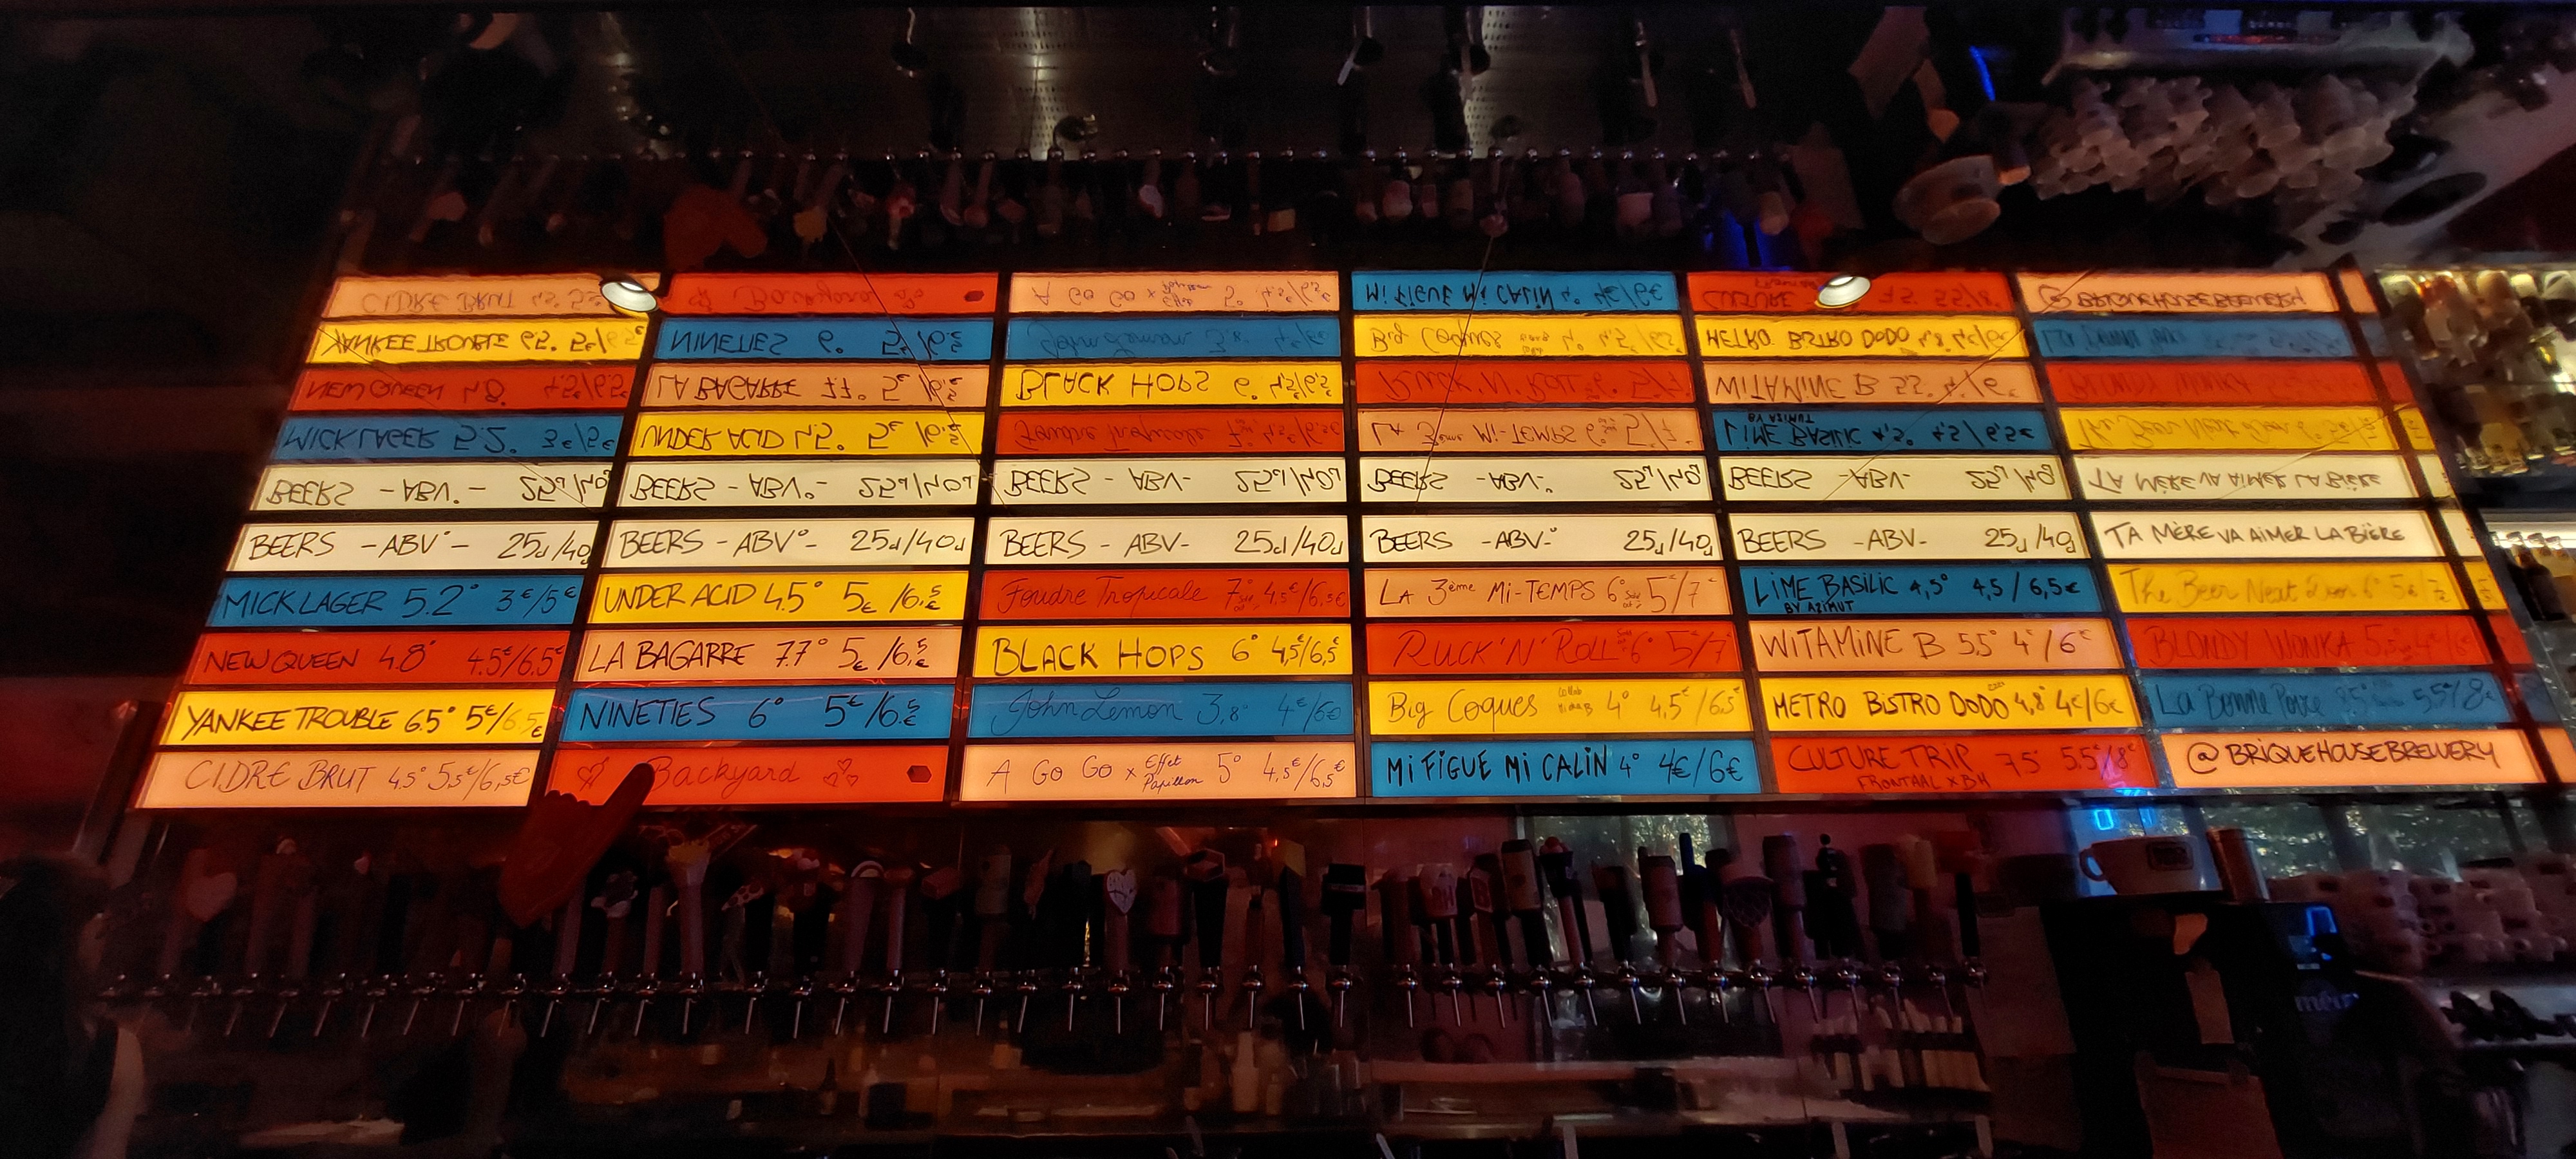 BEERS -ABV°- 25cl/40cl
MICK LAGER 5.2° 3€/5€
NEW QUEEN 4.8° 4.5€/6.5€
YANKEE TROUBLE 6.5° 5€/6.5€
CIDRE BRUT 4.5° 5,5€/6,5€
BEERS - ABV°- 25cl/40cl
UNDER ACID 4.5° 5€/6.5€
LA BAGARRE 7.7° 5€/6.5€
NINETIES 6° 5€/6.5€
Backyard
BEERS - ABV- 25cl/40cl
Foudre Tropicale 7° 4.5€/6.5€
BLACK HOPS 6° 4,5€/6,5€
John Lemon 3,8° 4€/6€
A Go Go x Effet Papillon 5° 4,5€/6,5€
BEERS -ABV-° 25cl/40cl
LA 3ème MI-TEMPS 6° 5€/7€
RUCK'N'ROLL 6° 5/7€
Big Coques collab 4° 4,5€/6,5€
Mi FiGUE Mi CALiN 4° 4€/6€
BEERS -ABV- 25cl/40cl
LiME BASiLiC 4,5° 4,5/6,5€
BY AZiMUT
WiTAMiNE B 5.5° 4€/6€
METRO BiSTRO DODO 4,8° 4€/6€
CULTURE TRIP 7.5° 5.5€/8€
FRONTAAL x BH
TA MÈRE VA AiMER LA BiÈRE
The Beer Next Door 6° 5€/7€
BLONDY WONKA 5,5° 4€/6€
La Bonne Poire 5,5€/8€
@BRiQUEHOUSEBREWERY